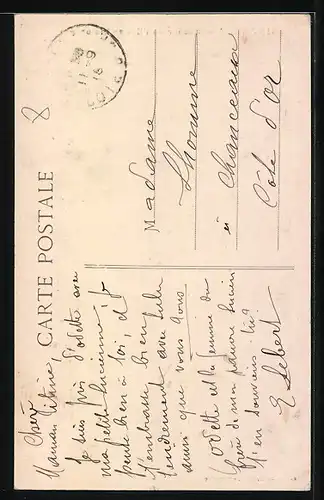 CARTE POSTALE
8
11-9
16
Madame
Lhomme
à Chanceaux
Côte d'or
Chère
Maman Titine,
Je suis près d'Odette avec
ma petite Lucienne, et
pense bien à toi, et
t'embrasse bien
tendrement avec Lulu
ainsi que vous tous
Odette est la femme du
frère de mon pauvre Lucien
t'en souviens tu ?
E Lebert